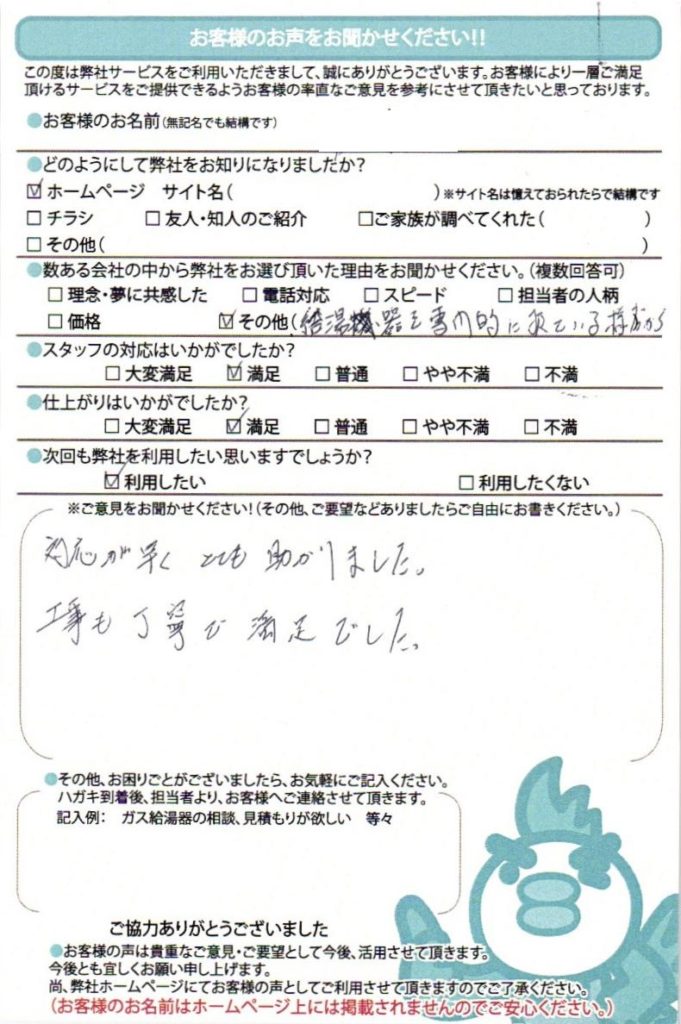 お客様のお声をお聞かせください!!
この度は弊社サービスをご利用いただきまして、誠にありがとうございます。お客様により一層ご満足
頂けるサービスをご提供できるようお客様の率直なご意見を参考にさせて頂きたいと思っております。
●お客様のお名前(無記名でも結構です)
●どのようにして弊社をお知りになりましたか?
☑ホームページ サイト名( )※サイト名は憶えておられたらで結構です
□チラシ □友人・知人のご紹介 □ご家族が調べてくれた( )
□その他( )
●数ある会社の中から弊社をお選び頂いた理由をお聞かせください。(複数回答可)
□理念・夢に共感した □電話対応 □スピード □担当者の人柄
□価格 ☑その他(給湯機器を専門的に来ている様だから
●スタッフの対応はいかがでしたか?
□大変満足 ☑満足 □普通 □やや不満 □不満
●仕上がりはいかがでしたか?
□大変満足 ☑満足 □普通 □やや不満 □不満
●次回も弊社を利用したい思いますでしょうか?
☑利用したい □利用したくない
※ご意見をお聞かせください!(その他、ご要望などありましたらご自由にお書きください。)
対応が早く とても 助かりました。
工事も 丁寧で 満足でした。
●その他、お困りごとがございましたら、お気軽にご記入ください。
ハガキ到着後、担当者より、お客様へご連絡させて頂きます。
記入例: ガス給湯器の相談、見積もりが欲しい 等々
ご協力ありがとうございました
●お客様の声は貴重なご意見・ご要望として今後、活用させて頂きます。
今後とも宜しくお願い申し上げます。
尚、弊社ホームページにてお客様の声としてご利用させて頂きますのでご了承ください。
(お客様のお名前はホームページ上には掲載されませんのでご安心ください。)